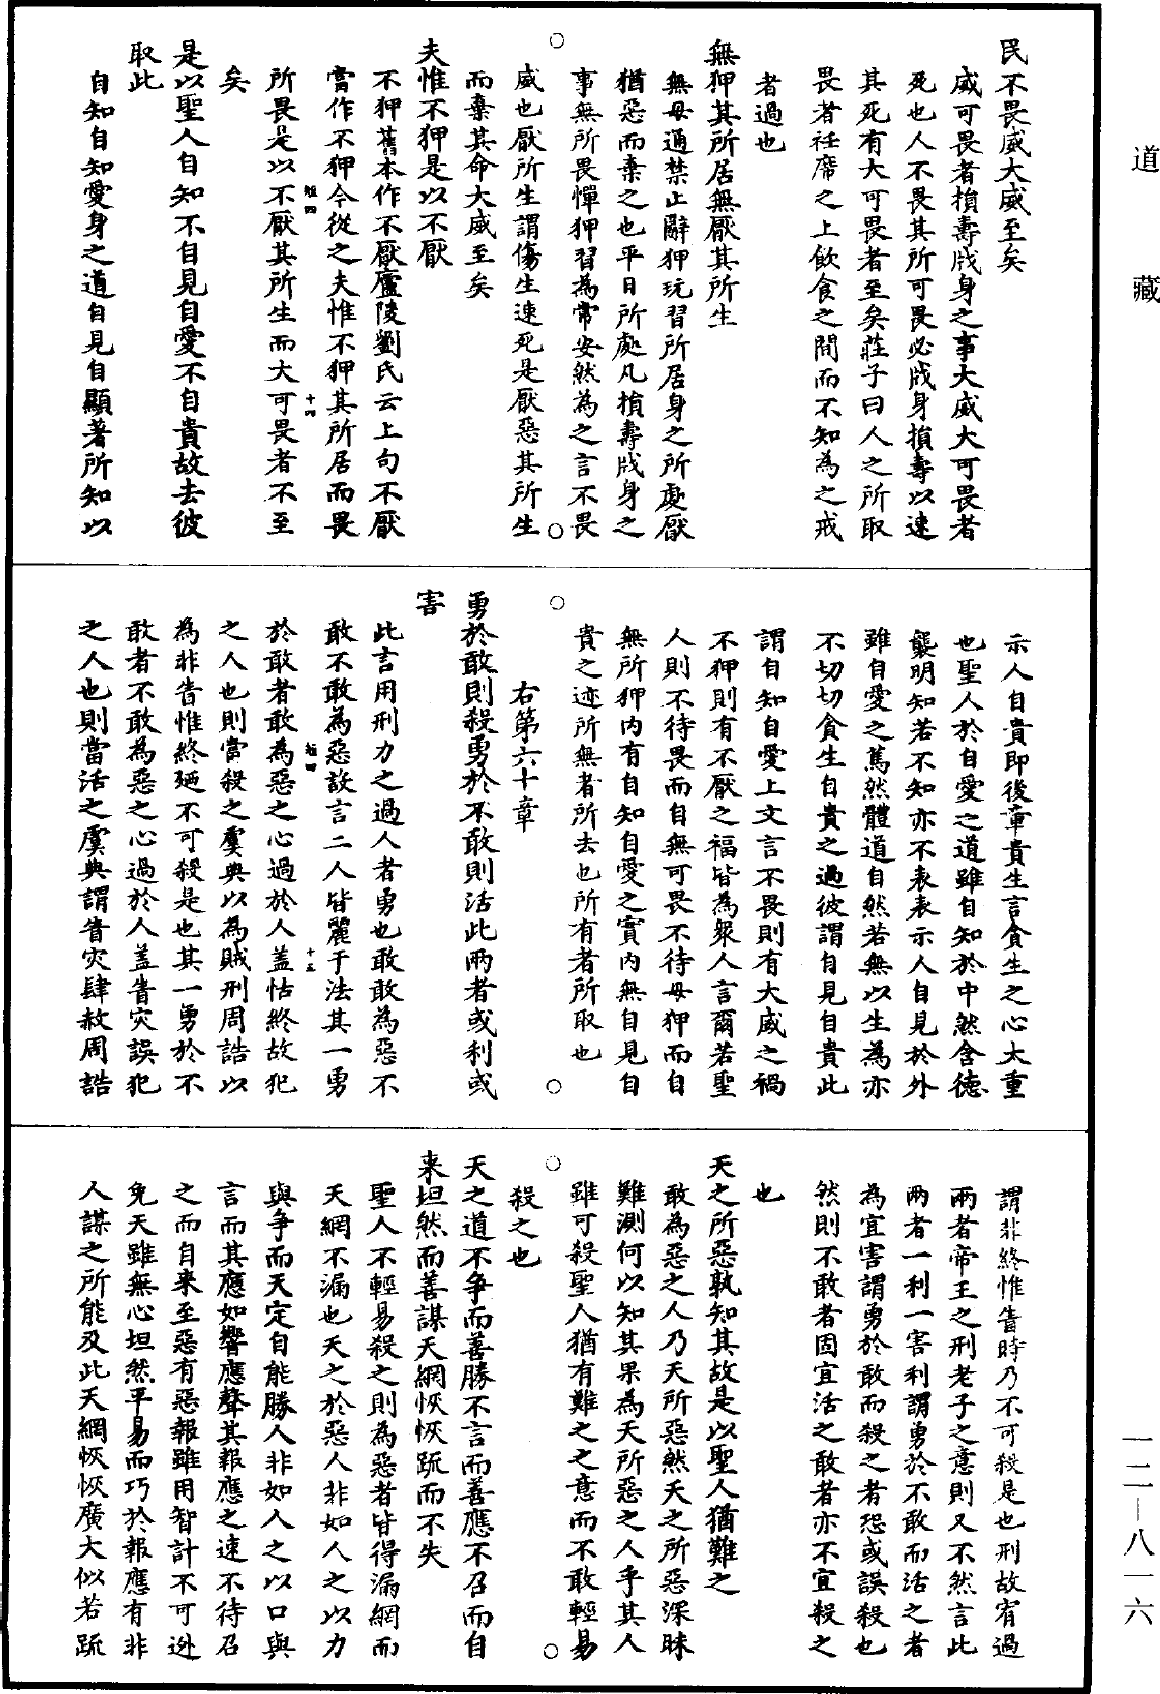 道藏
民不畏威大威至矣
威可畏者損壽戕身之事大威大可畏者
死也人不畏其所可畏必戕身損壽以速
其死有大可畏者至矣莊子曰人之所取
畏者衽席之上飲食之間而不知為之戒
者過也
無狎其所居無厭其所生
無毋通禁止辭狎玩習所居身之所處厭
猶惡而棄之也平日所處凡損壽戕身之
事無所畏憚狎習為常安然為之言不畏
威也厭所生謂傷生速死是厭惡其所生
而棄其命大威至矣
夫惟不狎是以不厭
不狎舊本作不厭廬陵劉氏云上句不厭
當作不狎今從之夫惟不狎其所居而畏
所畏是以不厭其所生而大可畏者不至
矣
是以聖人自知不自見自愛不自貴故去彼
取此
自知自知愛身之道自見自顯著所知以
示人自貴即後章貴生言貪生之心太重
也聖人於自愛之道雖自知於中然含德
襲明知若不知亦不表表示人自見於外
雖自愛之篤然體道自然若無以生為亦
不切切貪生自貴之過彼謂自見自貴此
謂自知自愛上文言不畏則有大威之禍
不狎則有不厭之福皆為衆人言爾若聖
人則不待畏而自無可畏不待毋狎而自
無所狎內有自知自愛之實內無自見自
貴之迹所無者所去也所有者所取也
右第六十章
勇於敢則殺勇於不敢則活此兩者或利或
害
此言用刑力之過人者勇也敢敢為惡不
敢不敢為惡設言二人皆麗于法其一勇
於敢者敢為惡之心過於人盖怙終故犯
之人也則當殺之虞典以為賊刑周誥以
為非眚惟終廼不可殺是也其一勇於不
敢者不敢為惡之心過於人盖眚灾誤犯
之人也則當活之虞典謂眚灾肆赦周誥
謂非終惟眚時乃不可殺是也刑故宥過
兩者帝王之刑老子之意則又不然言此
兩者一利一害利謂勇於不敢而活之者
為宜害謂勇於敢而殺之者恐或誤殺也
然則不敢者固宜活之敢者亦不宜殺之
也
天之所惡孰知其故是以聖人猶難之
敢為惡之人乃天所惡然天之所惡深昧
難測何以知其果為天所惡之人乎其人
雖可殺聖人猶有難之之意而不敢輕易
殺之也
天之道不爭而善勝不言而善應不召而自
來坦然而善謀天網恢恢踈而不失
聖人不輕易殺之則為惡者皆得漏網而
天網不漏也天之於惡人非如人之以力
與爭而天定自能勝人非如人之以口與
言而其應如響應聲其報應之速不待召
之而自來至惡有惡報雖用智計不可逊
免天雖無心坦然平易而巧於報應有非
人謀之所能及此天網恢恢廣大似若踈
一二—八一六